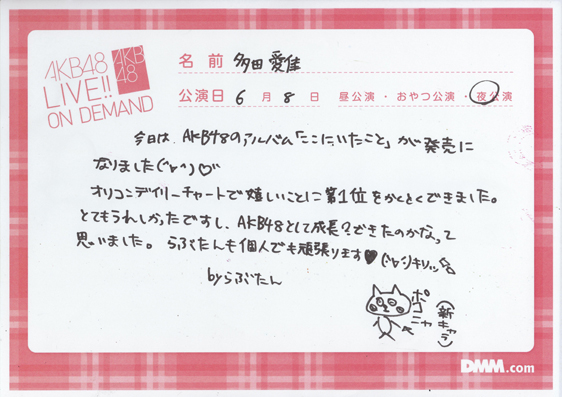 AKB48
LIVE!!
ON DEMAND
AKB
48
名前 多田愛佳
公演日 6月8日 昼公演・おやつ公演・夜公演
今日は、AKB48のアルバム「ここにいたこと」が発売に
なりました(^▽^)♡
オリコンデイリーチャートで嬉しいことに第1位をかくとくできました。
とてもうれしかったですし、AKB48として成長?できたのかなって
思いました。らぶたんも個人でも頑張ります♥ キリッ
byらぶたん
ポコニャ
(新キャラ)
DMM.com